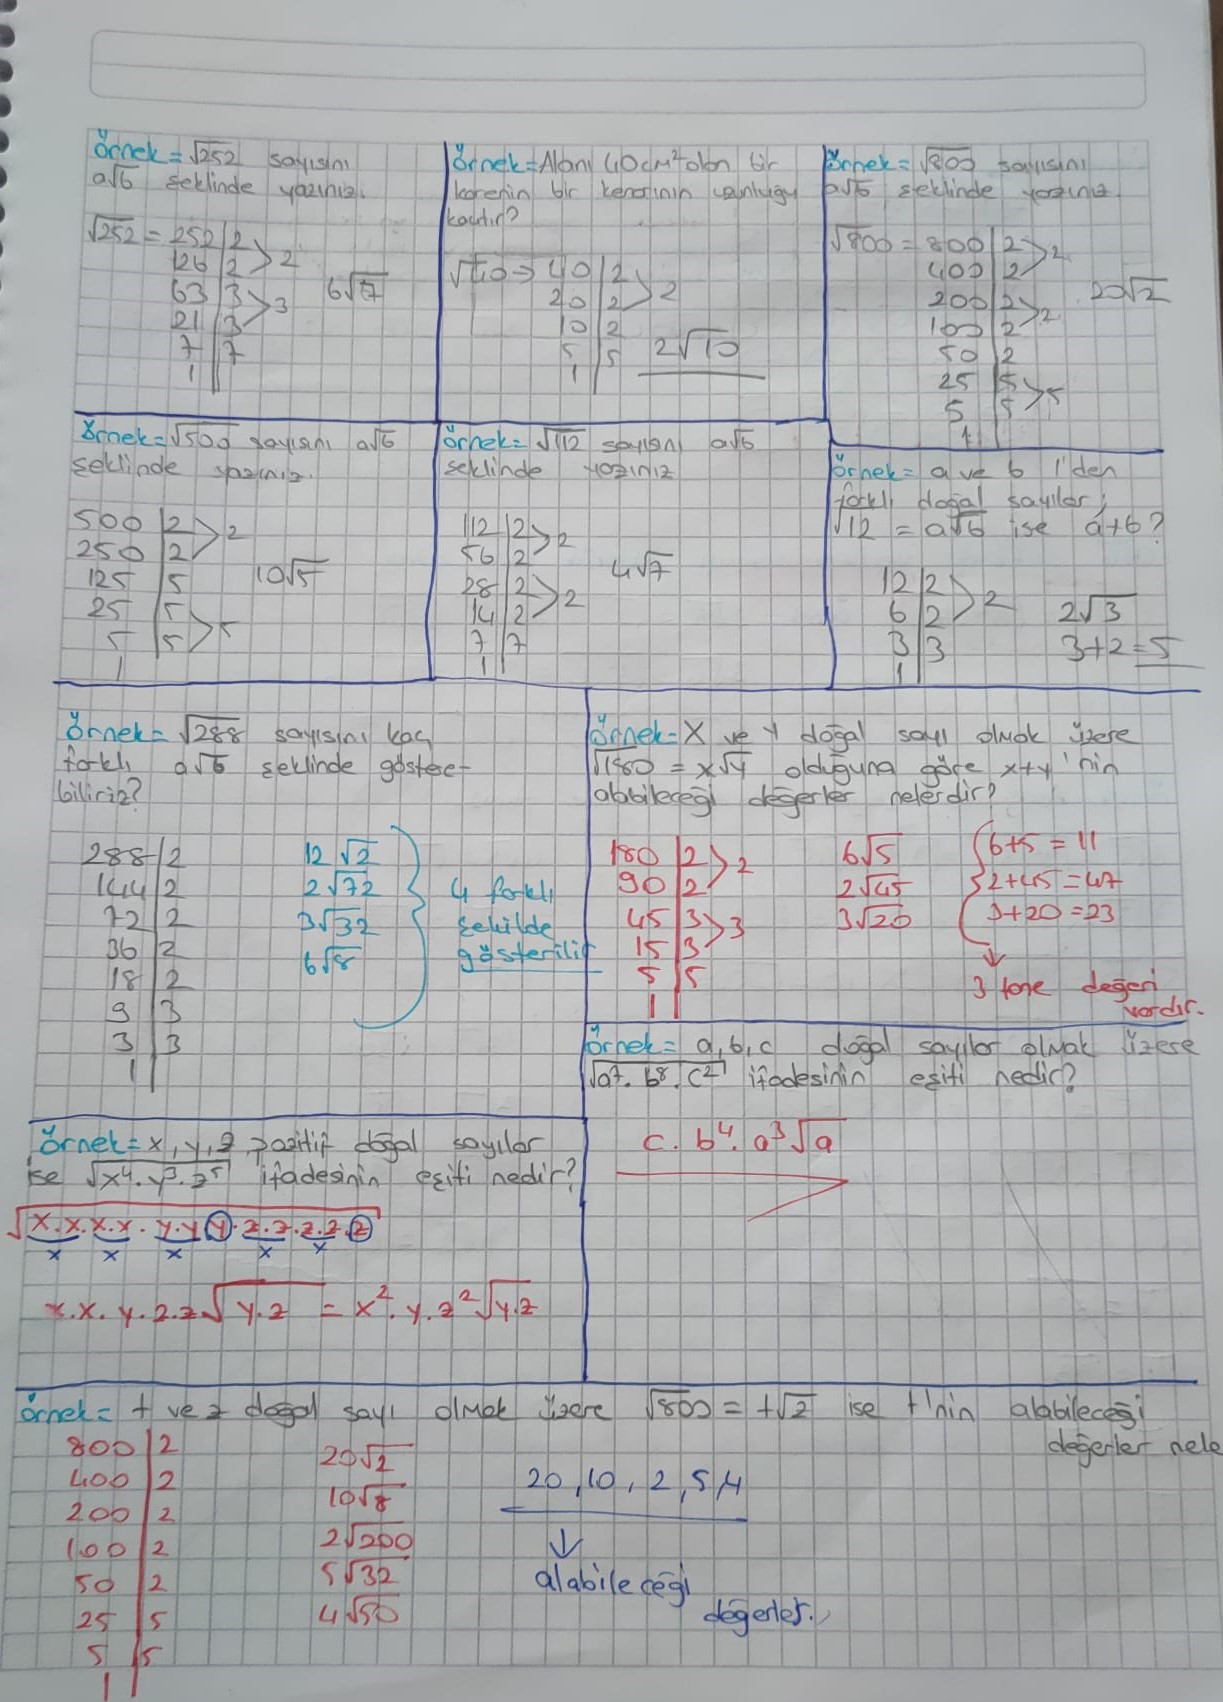 Örnek = √252 sayısını
a√b şeklinde yazınız.
√252 = 252 | 2
126 | 2 > 2
63 | 3
21 | 3 > 3
7 | 7
1
6√7
Örnek = Alanı 40cm² olan bir
karenin bir kenarının uzunluğu
kaçtır?
√40 → 40 | 2
20 | 2 > 2
10 | 2
5 | 5
1
2√10
Örnek = √800 sayısını
a√b şeklinde yazınız.
√800 = 800 | 2
400 | 2 > 2
200 | 2
100 | 2 > 2
50 | 2
25 | 5
5 | 5 > 5
1
20√2
Örnek = √500 sayısını a√b
şeklinde yazınız.
500 | 2
250 | 2 > 2
125 | 5
25 | 5
5 | 5 > 5
1
10√5
Örnek = √112 sayısını a√b
şeklinde yazınız
112 | 2
56 | 2 > 2
28 | 2
14 | 2 > 2
7 | 7
1
4√7
Örnek = a ve b 1'den
farklı doğal sayılar;
√12 = a√b ise a+b?
12 | 2
6 | 2 > 2
3 | 3
1
2√3
3+2=5
Örnek = √288 sayısını kaç
farklı a√b şeklinde göstere-
biliriz?
288 | 2
144 | 2
72 | 2
36 | 2
18 | 2
9 | 3
3 | 3
1
12√2
2√72
3√32
6√8
4 farklı
şekilde
gösterilir
Örnek = X ve Y doğal sayı olmak üzere
√180 = x√y olduğuna göre x+y'nin
alabileceği değerler nelerdir?
180 | 2
90 | 2 > 2
45 | 3
15 | 3 > 3
5 | 5
1
6√5
2√45
3√20
6+5 = 11
2+45=47
3+20=23
3 tane değeri
vardır.
Örnek = a,b,c doğal sayılar olmak üzere
√a⁷.b⁸.c² ifadesinin eşiti nedir?
c.b⁴.a³√a
Örnek = x,y,z pozitif doğal sayılar
ise √x⁴.y³.z⁵ ifadesinin eşiti nedir?
√x.x.x.x.y.y.y.z.z.z.z.z
x x x x x
x.x.y.z.z√y.z = x².y.z²√y.z
Örnek = t ve z doğal sayı olmak üzere √800 = t√z ise t'nin alabileceği
değerler nele
800 | 2
400 | 2
200 | 2
100 | 2
50 | 2
25 | 5
5 | 5
1
20√2
10√8
2√200
5√32
4√50
20,10,2,5,4
↓
alabileceği
değerler.